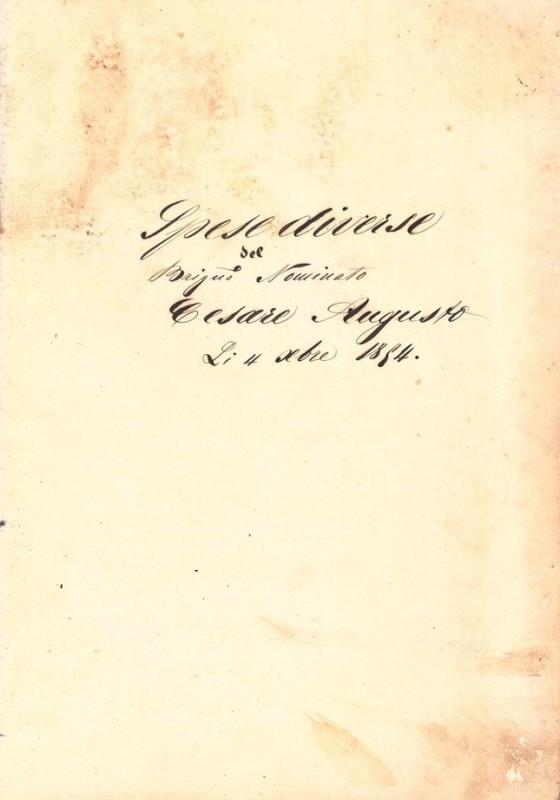 Spese diverse
del
Brigno Nominato
Cesare Augusto
Li 4 xbre 1854.